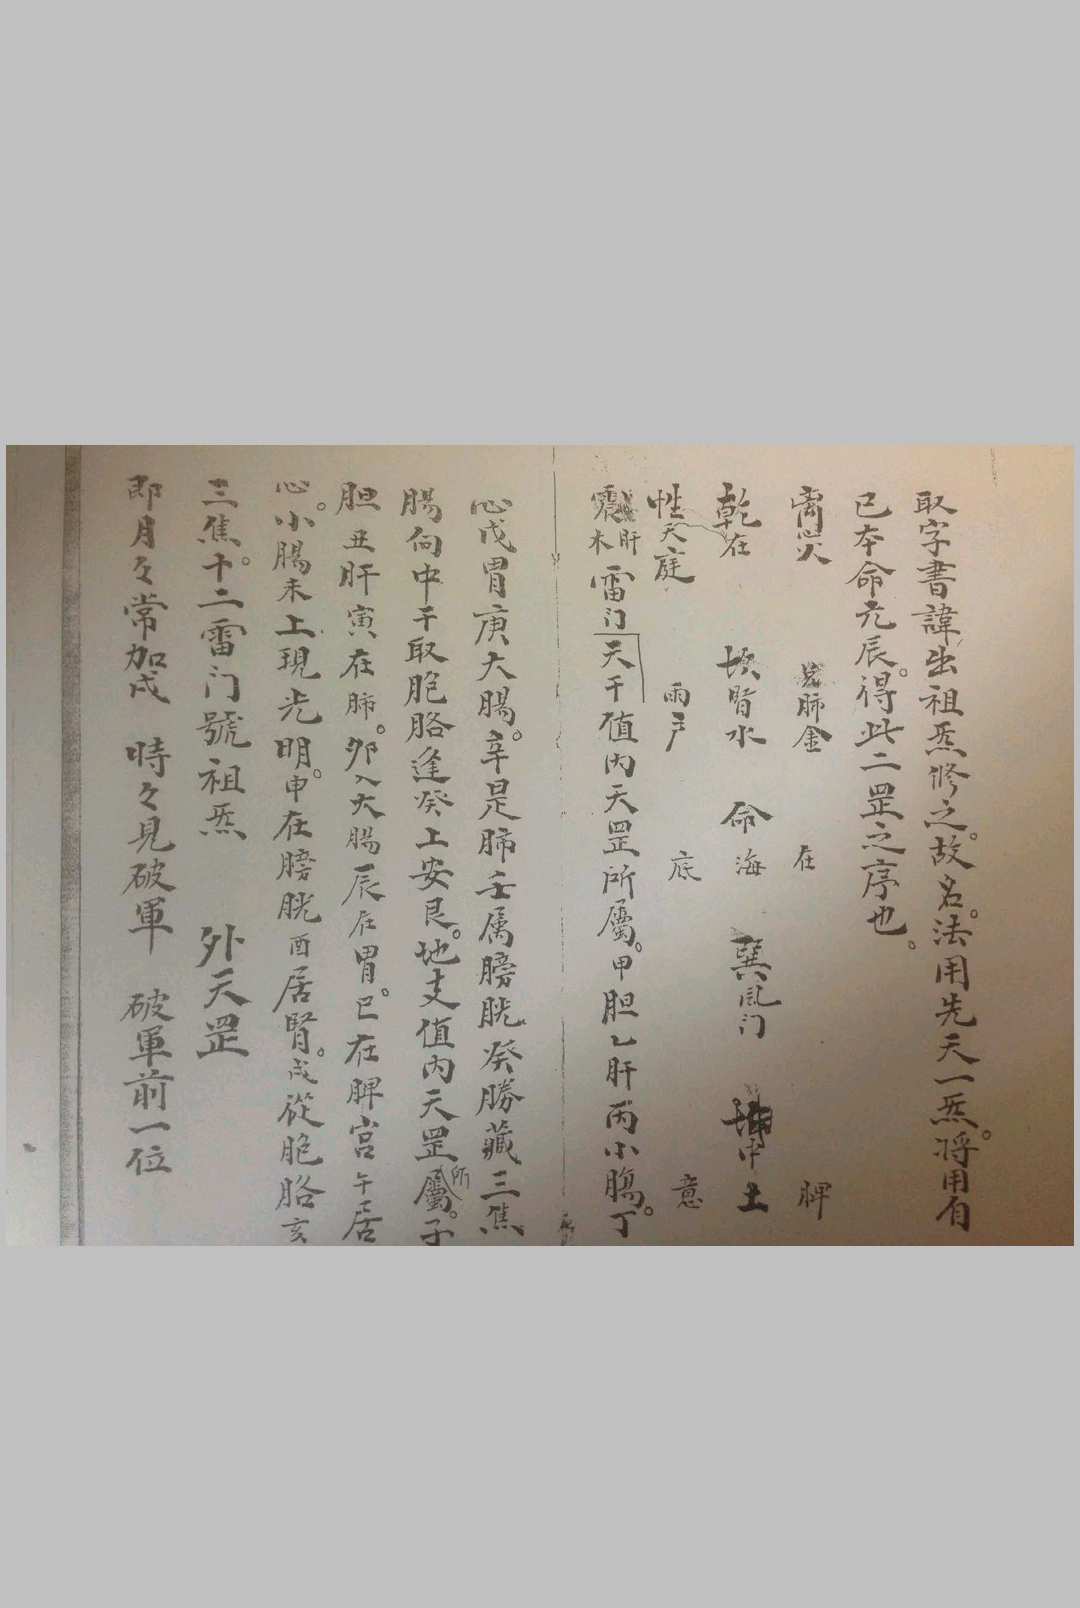 取字書諱出祖炁修之。故名。法用先天一炁。将用自
己本命元辰。得此二罡之序也。
离心火 兑肺金 在 脾
乾在 坎腎水 命海 巽風门 坤中土
性天庭 雨戸 底 意
震肝木雷门天干值内天罡所屬。甲胆乙肝丙小腸。丁
心戊胃庚大腸。辛是肺壬属膀胱癸勝藏三焦
腸向中干取胞胳逢癸上安艮。地支值内天罡所屬。子
胆丑肝寅在肺。卯入大腸辰在胃。巳在脾宫午居
心。小腸未上現光明。申在膀胱酉居腎。戌從胞胳亥
三焦。十二雷门號祖炁 外天罡
即月々常加戌 時々見破軍 破軍前一位